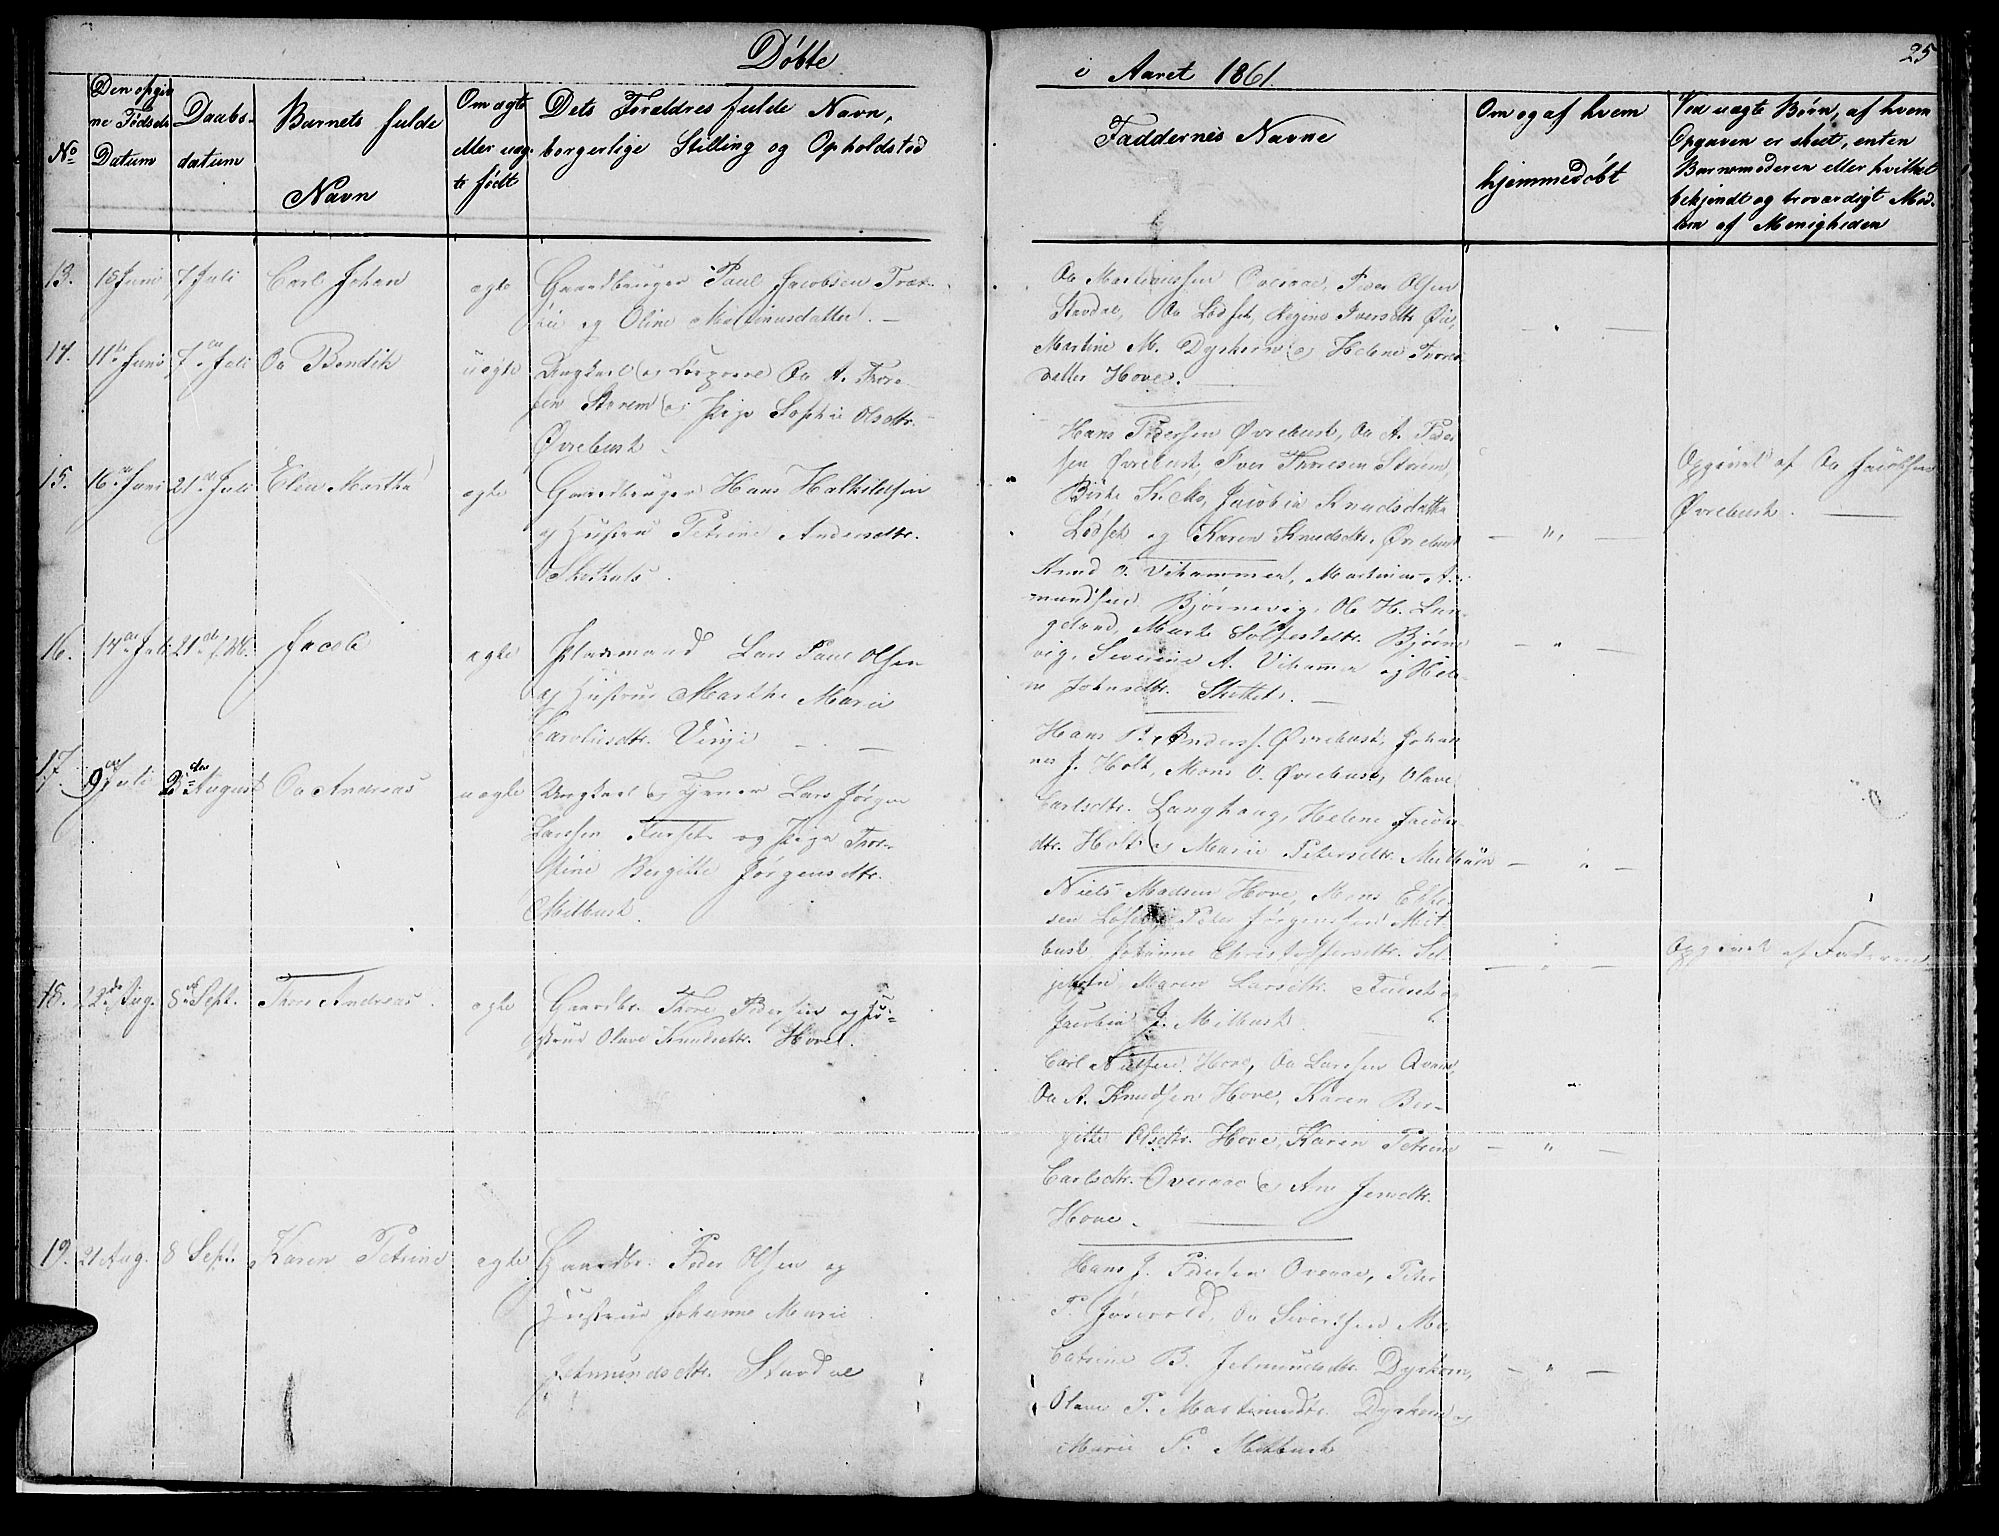 Døbte
i Aaret 1861.
25
No
Den opgivne Fødsels Datum
Daabsdatum
Barnets fulde Navn
Om ægte eller uægte født
Dets Forældres fulde Navn, borgerlige Stilling og Opholdsted
Faddernes Navne
Om og af hvem hjemmedøbt
Ved uægte Børn, af hvem Opgaven er skeet, enten Barnemoderen eller hvilket bekjendt og troværdigt Medlem af Menigheden
13. 15 Juni 7 Juli Carl Johan ægte Gaardbruger Paul Jacobsen
og Oline Martinusdatter. —
Iver Olsen
Stavdal, Oa Lødset, Regine Iversdtr.
Martine M. Dyrkorn og Helene Thores
datter Hove.
14. 11te Juni 7de Juli Oa Bendik uægte Ungkarl og Oa A. Thore
sen Storem og Pige Sophie Olsdtr.
Øvrebust.
Hans Pedersen Øvrebust, Oa A. Peder
sen Øvrebust, Iver Thoresen Storem,
Jacobia Knudsdatter
Lødset og Karen Knudsdtr. Øvrebust
Opgivet af Oa Jacobsen
Øvrebust.
15. 16de Juni 21de Juli Elen Martha ægte Gaardbruger Hans Halkildsen
og Hustru Petrine Andersdtr.
Knud O. Vihammer, Martinus A
mundsen Bjørnevig, Ole H. Lan
geland, Marte Bjørne
vig, Severine A. Vihammer og Hele
ne Johnsdtr.
16. 14de Juli 21de Juli Jacob ægte Pladsmand Lars Paul Olsen
og Hustrue Marthe Marie
Vinje — —
Hans P. Anderss. Øvrebust, Johan
nes J. Holt, Mons O. Øvrebust, Olave
Carlsdtr. Langhaug, Helene Jacobs
dtr. Holt og Marie Petersdtr.
17. 9de Juli 2den August Oa Andreas uægte Ungkarl og Tjener Lars Jørgen
Larssen Furset og Pige Thor
stine Bergitte Jørgensdtr.
Melbust.
Niels Madsen Hove, Mons
sen Lødset, Peter Jørgensen Mel
bust Johanne Christoffersdtr. Sel
Maren Larsdtr. Furset og
Jacobia J. Melbust.
Opgivet af Faderen
18. 22de Aug. 8de Sept. Thore Andreas ægte Gaardbr. Thore Pedersen og Hu-
strue Olave Knudsdtr. Hove.
Carl Nielsen Hove, Oa Larssen
Oa A. Knudsen Hove, Karen Ber-
gitte Olsdtr. Hove, Karen Petrine
Carlsdtr. Overaae og Ane Jensdtr.
Hove.
19. 21 Aug. 8 Sept. Karen Petrine ægte Gaardbr. Peder Olsen og
Hustrue Johanne Marie
Jetmundsdtr. Stavdal
Hans J. Pedersen Overaae, Peter
P. Oa Sivertsen Mo,
Catrine B. Jetmundsdtr. Dyrkorn,
Olave P. Martinusdtr. Dyrkorn og
Marie P. Melbust